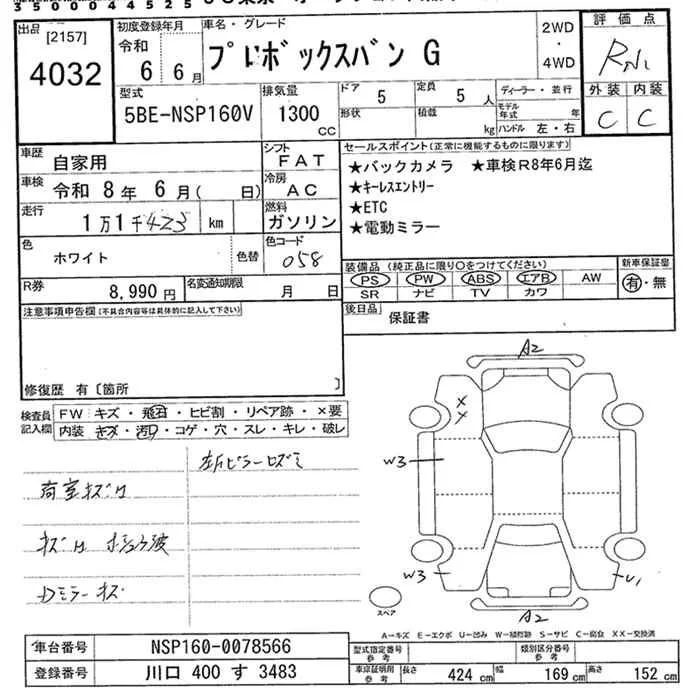 350004452 5
出品 [2157]
4032
初度登録年月
令和
6 6月
車名・グレード
プレボックスバン G
2WD
・
4WD
評価点
RN1
型式
5BE-NSP160V
排気量
1300 CC
ドア 5
定員 5 人
形状
積載 kg
ディーラー・並行
モデル年式 年
ハンドル 左・右
外装 内装
C C
車歴 自家用
シフト FAT
車検 令和 8年 6月( 日)
冷房 AC
走行 1万1千423 km
燃料 ガソリン
色 ホワイト 色替
色コード 058
R券 8,990円
名変通知期限 月 日
セールスポイント(正常に機能するものに限ります)
★バックカメラ ★車検R8年6月迄
★キーレスエントリー
★ETC
★電動ミラー
装備品(純正品に限り○をつけてください)
PS PW ABS エアB AW
SR ナビ TV カワ
新車保証書
有・無
後日品 保証書
注意事項申告欄(不具合内容等は具体的に記入して下さい)
修復歴 有〔箇所 〕
検査員記入欄
FW キズ・飛石・ヒビ割・リペア跡・×要
内装 キズ・汚れ・コゲ・穴・スレ・キレ・破レ
左Rピラーヒズミ
荷室キズH
Dミラーキズ
A2
W3
W3
U1
A2
スペア
A−キズ E−エクボ U−凹み W−補修跡 S−サビ C−腐食 XX−交換済
車台番号 NSP160-0078566
登録番号 川口 400 す 3483
型式指定番号 参考
類別区分番号 参考
車検証明用 参考
長さ 424 cm 幅 169 cm 高さ 152 cm